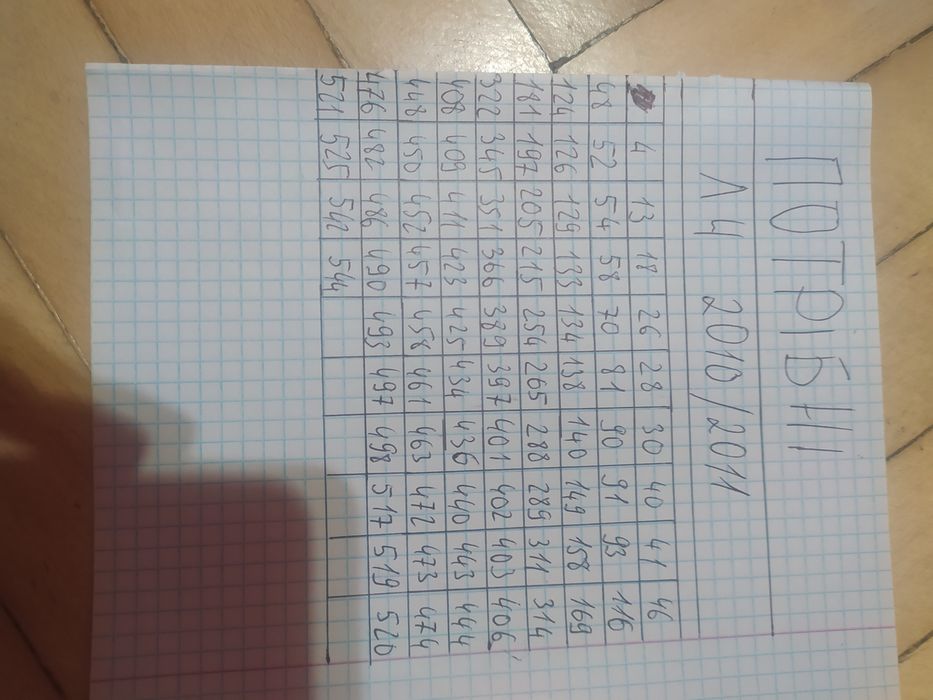 ПОТРІБНІ
ЛЧ 2010/2011
4 13 18 26 28 30 40 41 46
48 52 54 58 70 81 90 91 93 116
124 126 129 133 134 138 140 149 158 169
181 197 205 215 254 265 288 289 311 314
322 345 351 366 389 397 401 402 403 406
408 409 411 423 425 434 436 440 443 444
448 450 452 457 458 461 463 472 473 474
476 482 486 490 493 497 498 517 519 520
521 525 542 544